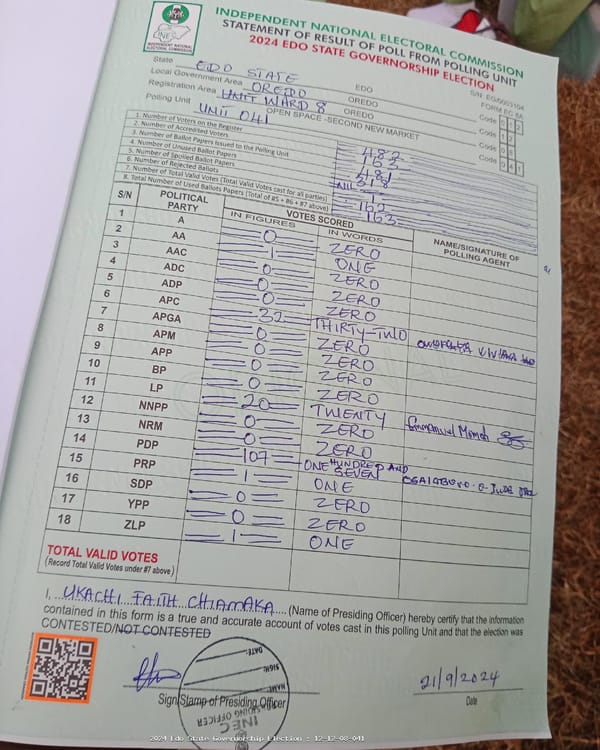 INDEPENDENT NATIONAL ELECTORAL COMMISSION
STATEMENT OF RESULT OF POLL FROM POLLING UNIT
2024 EDO STATE GOVERNORSHIP ELECTION
INEC
INDEPENDENT NATIONAL ELECTORAL COMMISSION
FORM EC 8A
State EDO STATE EDO Code 0 1 2
Local Government Area OREDO OREDO Code
Registration Area WARD 8 OREDO Code
Polling Unit UNIT 041 OPEN SPACE -SECOND NEW MARKET Code 0 4 1
1. Number of Voters on the Register 483
2. Number of Accredited Voters 163
3. Number of Ballot Papers Issued to the Polling Unit 481
4. Number of Unused Ballot Papers 318
5. Number of Spoiled Ballot Papers NIL
6. Number of Rejected Ballots 1
7. Number of Total Valid Votes (Total Valid Votes cast for all parties) 162
8. Total Number of Used Ballots Papers (Total of #5 + #6 + #7 above) 163
S/N POLITICAL PARTY VOTES SCORED NAME/SIGNATURE OF POLLING AGENT
IN FIGURES IN WORDS
1 A 0 ZERO
2 AA 1 ONE
3 AAC 0 ZERO
4 ADC 0 ZERO
5 ADP 0 ZERO
6 APC 32 THIRTY-TWO
7 APGA 0 ZERO
8 APM 0 ZERO
9 APP 0 ZERO
10 BP 0 ZERO
11 LP 20 TWENTY Emmanuel Momoh
12 NNPP 0 ZERO
13 NRM 0 ZERO
14 PDP 107 ONE HUNDRED AND SEVEN
15 PRP 1 ONE
16 SDP 0 ZERO
17 YPP 0 ZERO
18 ZLP 1 ONE
TOTAL VALID VOTES
(Record Total Valid Votes under #7 above)
I, UKACHI FAITH CHIAMAKA (Name of Presiding Officer) hereby certify that the information
contained in this form is a true and accurate account of votes cast in this polling Unit and that the election was
CONTESTED/NOT CONTESTED
21/9/2024
Sign/Stamp of Presiding Officer Date
DATE:
SIGN:
NAME:
PRESIDING OFFICER
INEC
2024 Edo State Governorship Election : 12-12-08-041